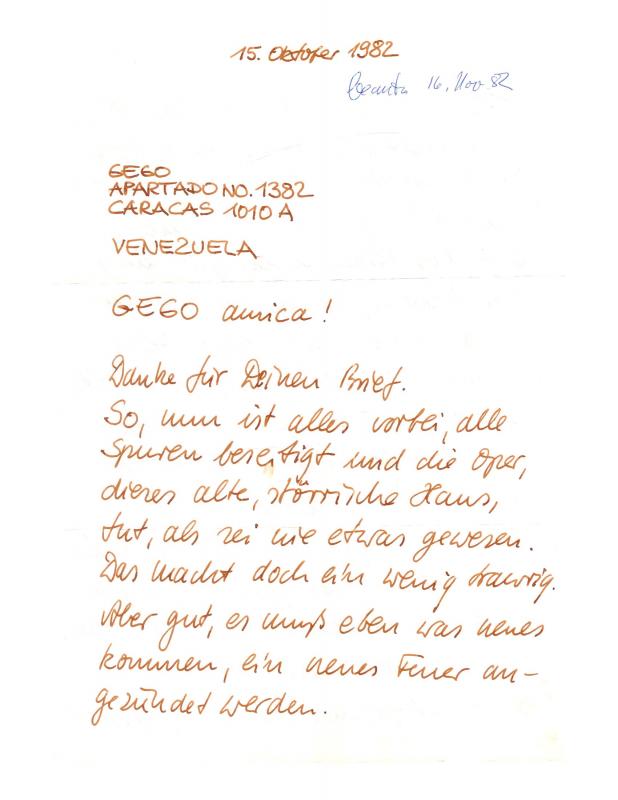 15. Oktober 1982
16. Nov 82
GEGO
APARTADO NO. 1382
CARACAS 1010 A
VENEZUELA
GEGO amica!
Danke für Deinen Brief.
So, nun ist alles vorbei, alle
Spuren beseitigt und die Oper,
dieses alte, störrische Haus,
tut, als sei nie etwas gewesen.
Das macht doch ein wenig traurig.
Aber gut, es muß eben was neues
kommen, ein neues Feuer an-
gezündet werden.